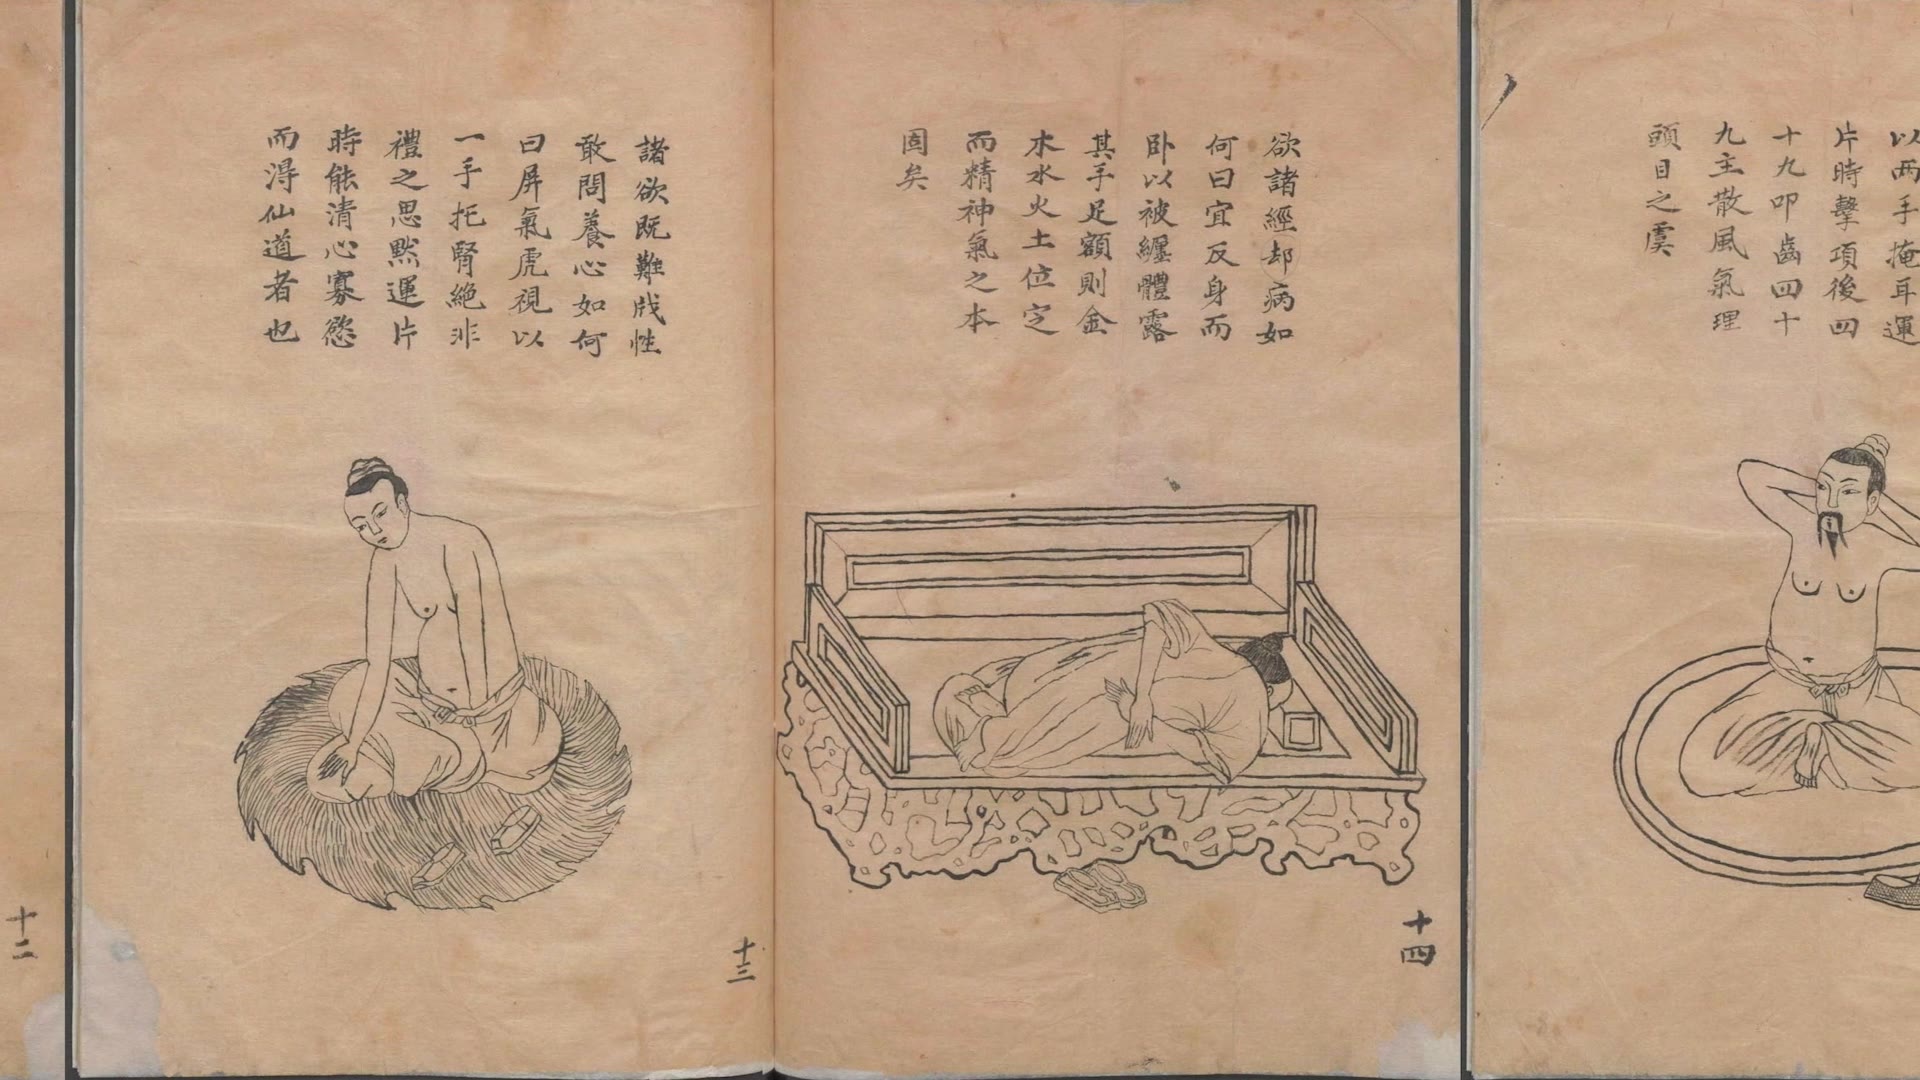 十二
諸欲既難戕性
敢問養心如何
曰屏氣虎視以
一手托腎絶非
禮之思默運片
時能清心寡慾
而淂仙道者也
十三
欲諸經却病如
何曰宜反身而
卧以被纏體露
其手足額則金
木水火土位定
而精神氣之本
固矣
十四
以两手掩耳運
片時擊項後四
十九叩齒四十
九主散風氣理
頭目之虞